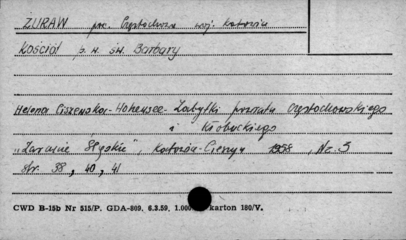 ŻURAW pow. Częstochowa woj. katowice
KOŚCIÓŁ p. w. św. Barbary
Helena Ciszewska-Hohensee-Zabytki powiatu Częstochowskiego
i Kłobuckiego
"Zaranie Śląskie", Katowice-Cieszyn 1958, Nr. 3
str. 38, 40, 41
CWD B-15b Nr 515/P. GDA-809. 6.3.59. 1.000 karton 180/V.